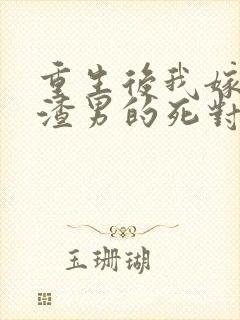 重生後我嫁
渣男的死對
玉珊瑚